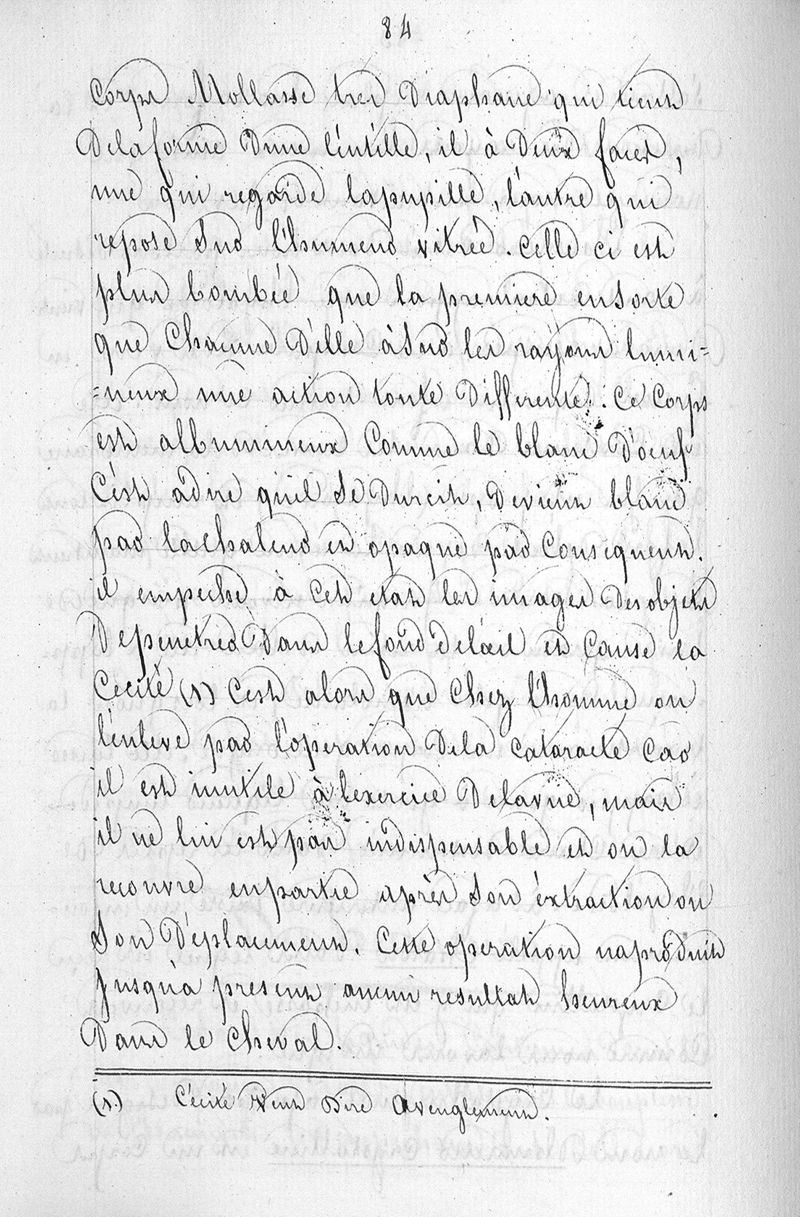 84
Corps Mollasse tres Diaphane qui tient
Delaforme Dune lentille, il à Deux faces,
une qui regarde lapupille, l'autre qui
repose Sur l'humeur vitrée. Celle ci est
plus bombée que la premiere ensorte
que Chacune D'elle àSur les rayons lumi=
=neux une action toute Differente. Ce Corps
est albumineux Comme le blanc D'oeuf
C'est adire qu'il Se Durcit, Devient blanc
par lachaleur et opaque par Consequent.
il empeche à Cet etat les images Des objets
Depenetrer Dans lefond del'œil et Cause la
Cecité (1) C'est alors que Chez l'homme on
l'enleve par l'operation Dela Cataracte Car
il est inutile à lexercice Delavue, mais
il ne lui est pas indispensable et on la
recouvre enpartie après Son éxtraction ou
Son Déplacement. Cette operation naproduit
Jusqu'a present aucun resultat heureux
Dans le Cheval.
(1) Cécité Veut Dire Aveuglement.